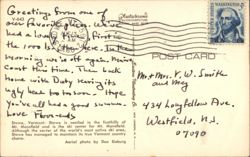 Greetings from one of
our favorite places. We've
had a lovely time, first in
the 1000 Islands, then here. In the
morning we're off again, Maine
coast this time. Then back
home with Duty rearing its
ugly head too soon. Hope
you've all had a good summer.
Love
Stowe, Vermont Stowe is nestled in the foothills of
Mt. Mansfield and is the ski center for Mt. Mansfield.
Although the center of the world's most active ski area,
Stowe has managed to maintain its true Vermont country
charm.
Aerial photo by Don Sieburg
V-642
Plastichrome
POST CARD
WASHINGTON
5¢
Mr + Mrs. V. W. Smith
and
434 Longfellow Ave.
Westfield, N.J.
07090